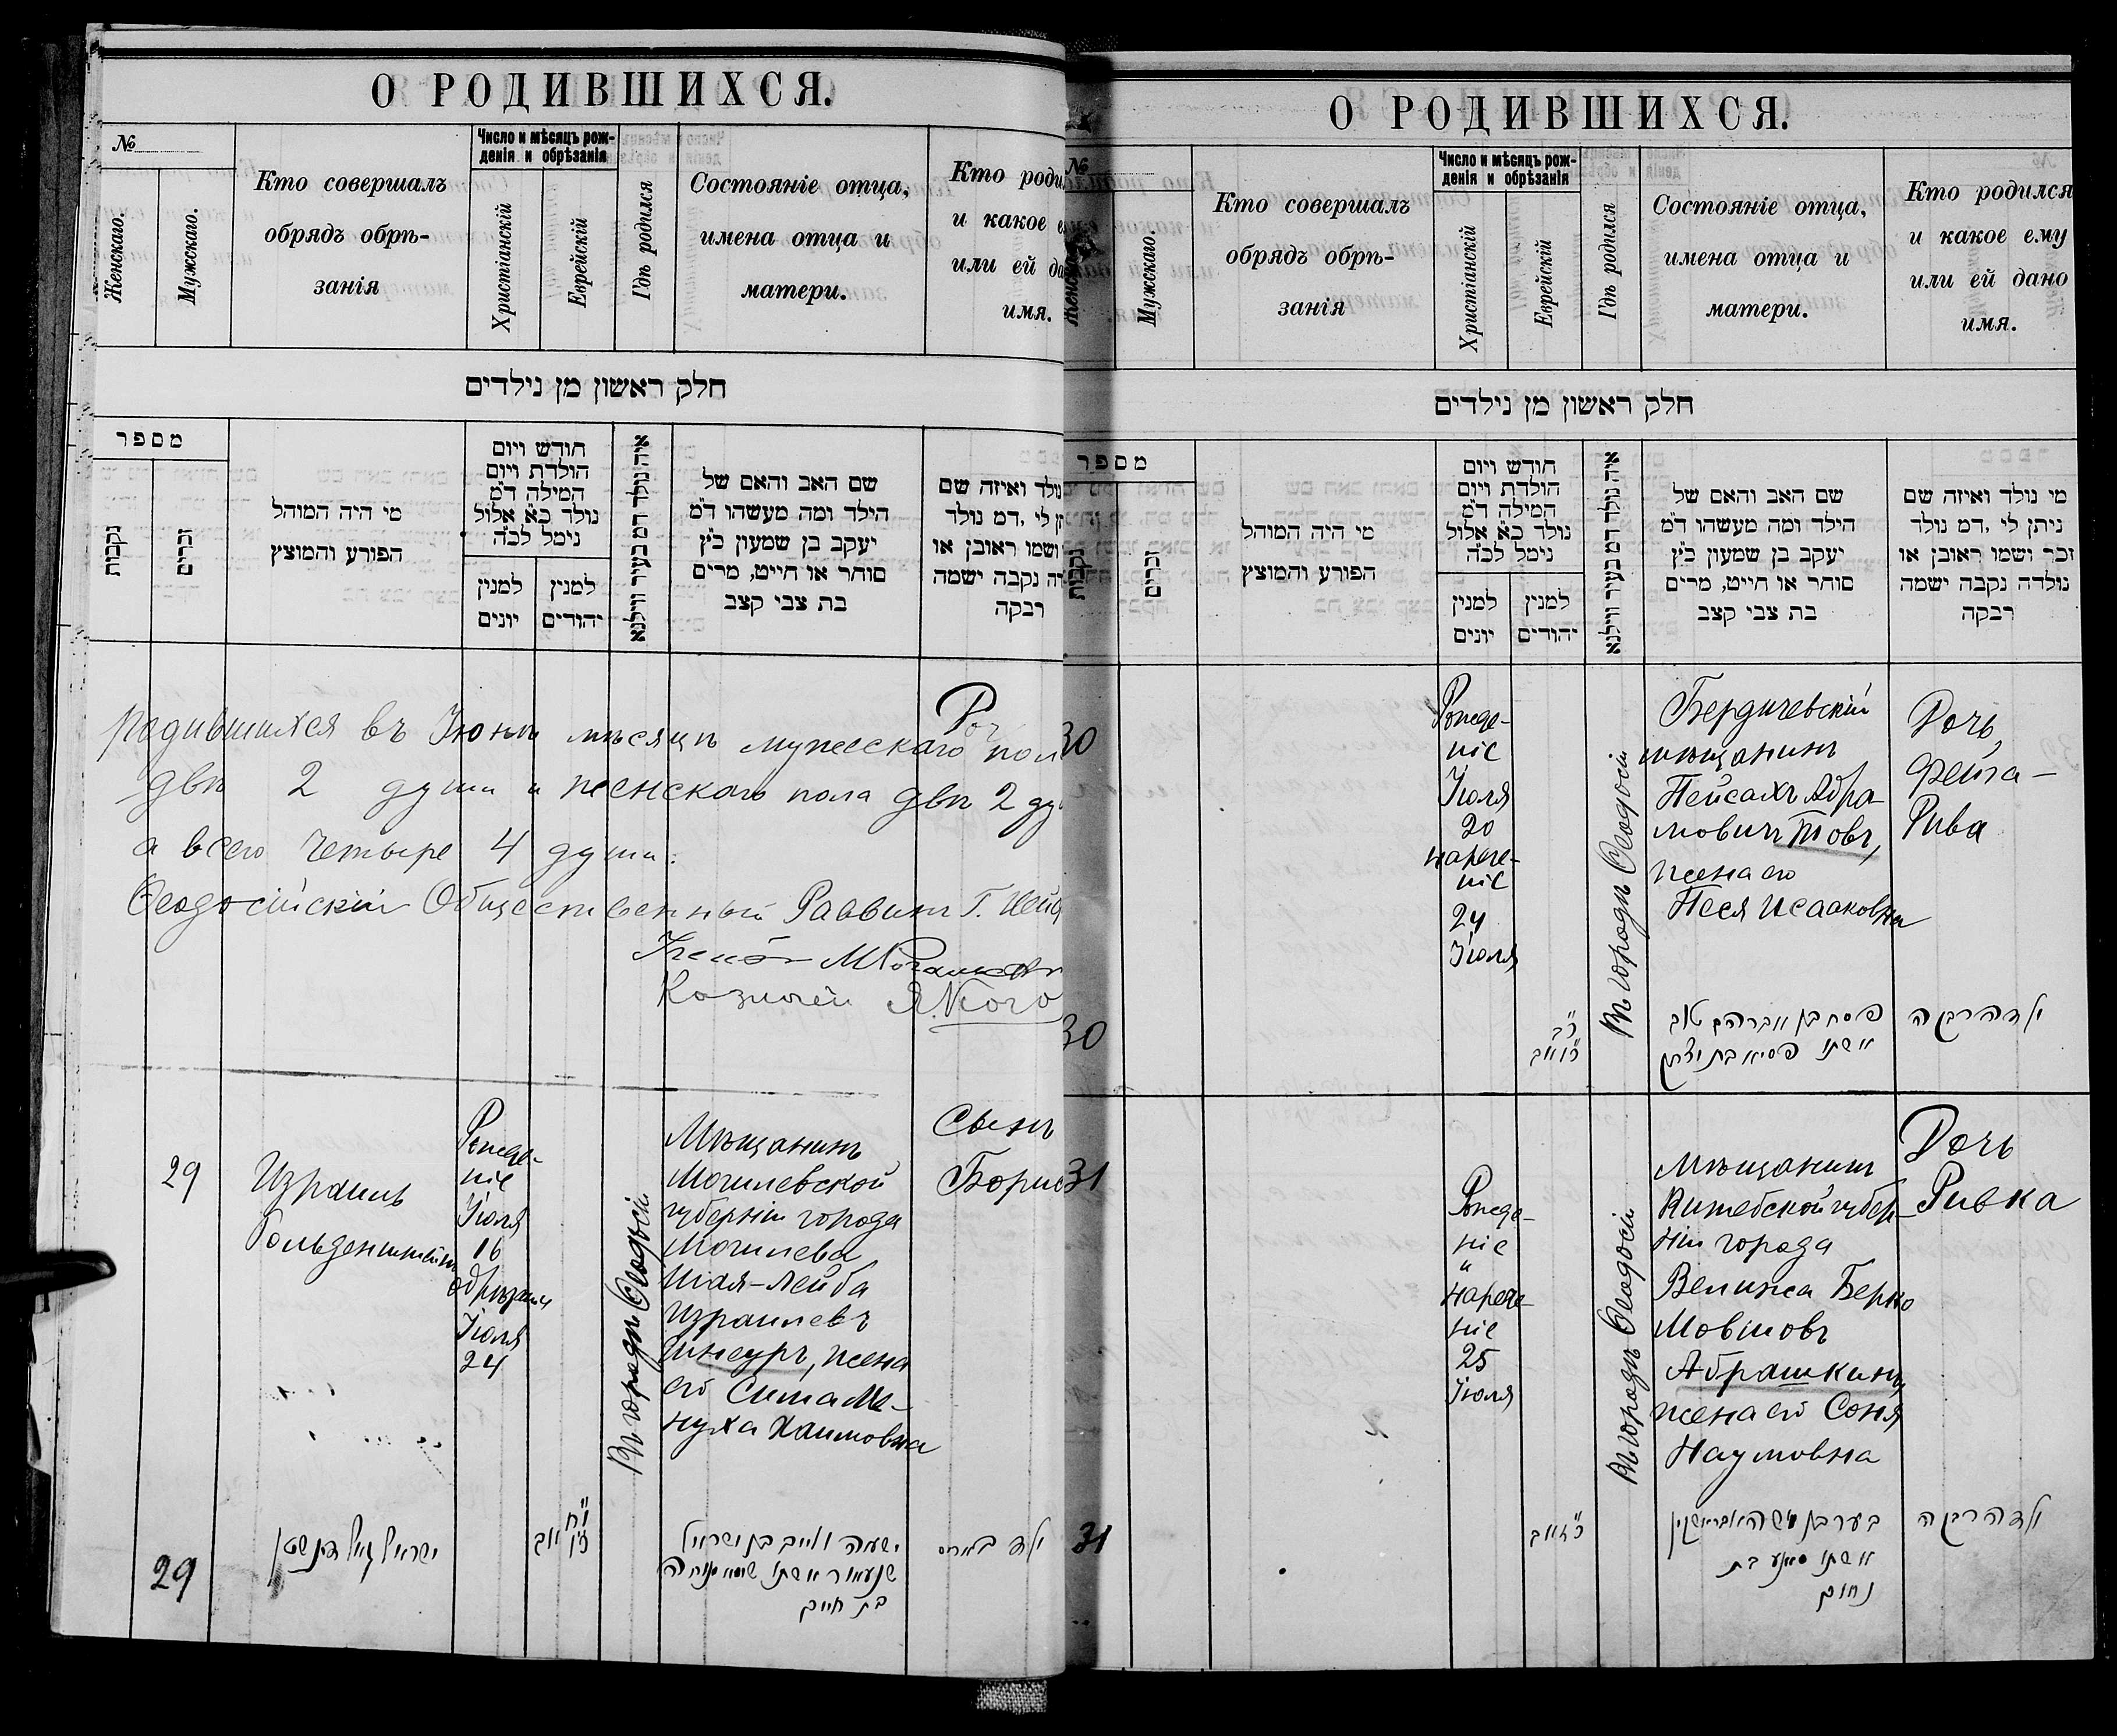 О РОДИВШИХСЯ.
№
Женскаго.
Мужскаго.
Кто совершалъ
обрядъ обрѣ-
занія
Число и мѣсяцъ рож-
денія и обрѣзанія
Христіанскій
Еврейскій
Гдѣ родился
Состояніе отца,
имена отца и
матери.
Кто роди
и какое е
или ей да
имя.
חלק ראשון מן נילדים
מספר
נקבות
זכרים
מי היה המוהל
הפורע והמוצץ
חודש ויום
הולדת ויום
המילה ד"מ
נולד כ"א אלול
נימל לכ"ה
למנין
יונים
למנין
יהודים
איה נולד דמ בעיר ווילנא
שם האב והאם של
הילד ומה מעשהו ד"מ
יעקב בן שמעון כ"ץ
סוחר או חייט, מרים
בת צבי קצב
נולד ואיזה שם
לי, דמ נולד
ושמו ראובן או
דה נקבה ישמה
רבקה
родившихся въ Іюнѣ мѣсяцѣ мужескаго пол
двѣ 2 души и женскаго пола двѣ 2 ду
а всего четыре 4 души.
Ѳеодосійскій Общественный Раввинъ Г.
Казначей
29
Израиль
Гольденштейн
Рожде-
ніе
Іюля
16
обрѣзаніе
Іюля
24
Въ городѣ Ѳеодосіи
Мѣщанинъ
Могилевской
губерніи города
Могилева
Шая-Лейба
Израилевъ
Шнеуръ, жена
его Сима Ме-
нуха Хаимовна
Сынъ
Борис
29
ישעיה לייב בן ישראל
בת חיים
ילד
О РОДИВШИХСЯ.
№
Женскаго
Мужскаго.
Кто совершалъ
обрядъ обрѣ-
занія
Число и мѣсяцъ рож-
денія и обрѣзанія
Христіанскій
Еврейскій
Гдѣ родился
Состояніе отца,
имена отца и
матери.
Кто родился
и какое ему
или ей дано
имя.
חלק ראשון מן נילדים
מספר
נקבות
זכרים
מי היה המוהל
הפורע והמוצץ
חודש ויום
הולדת ויום
המילה ד"מ
נולד כ"א אלול
נימל לכ"ה
למנין
יונים
למנין
יהודים
איה נולד דמ בעיר ווילנא
שם האב והאם של
הילד ומה מעשהו ד"מ
יעקב בן שמעון כ"ץ
סוחר או חייט, מרים
בת צבי קצב
מי נולד ואיזה שם
ניתן לי, דמ נולד
זכר ושמו ראובן או
נולדה נקבה ישמה
רבקה
30
Рожде-
ніе
Іюля
20
нарече-
ніе
24
Іюля
Въ городѣ Ѳеодосіи
Бердичевскій
мѣщанинъ
Пейсахъ Абра-
мовичъ Товъ,
жена его
Песя Исааковна
Дочь
Фейга-
Рива
30
פסח בן אברהם טוב
אשתו פסיא בת יצחק
ילדה רבקה
31
Рожде-
ніе
и
нарече-
ніе
25
Іюля
Въ городѣ Ѳеодосіи
Мѣщанинъ
Витебской губер-
ніи города
Велижа Берко
Мовшовъ
Абрашкинъ,
жена его Соня
Наумовна
Дочь
Ривка
31
בער בן משה אבראשקין
אשתו סאניע בת
נחום
ילדה רבקה